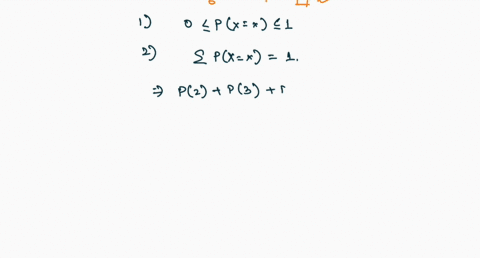 1) 0 ≤ P(x=x) ≤ 1
2) Σ P(x=x) = 1.
⇒ P(2) + P(3) + r